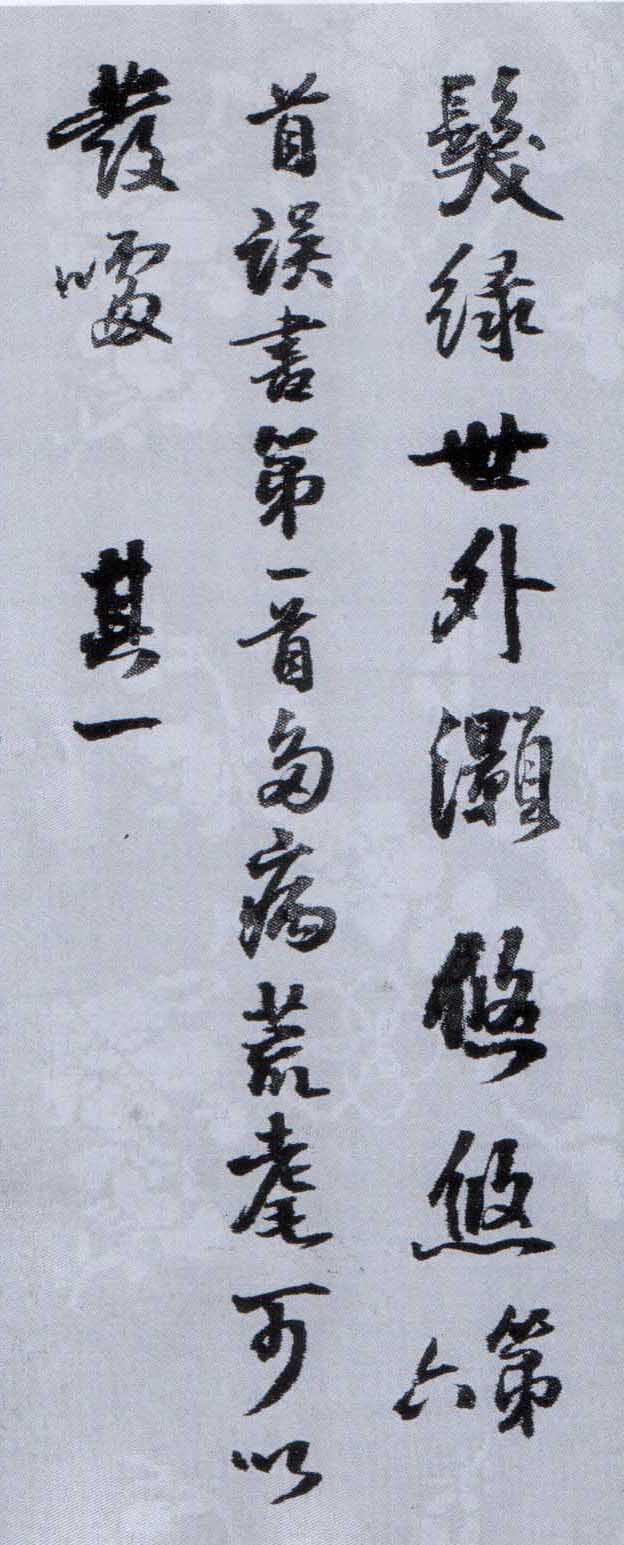 鬓绿世外灏悠悠第六
首误书第一首多病荒耄可以
發噱 其一